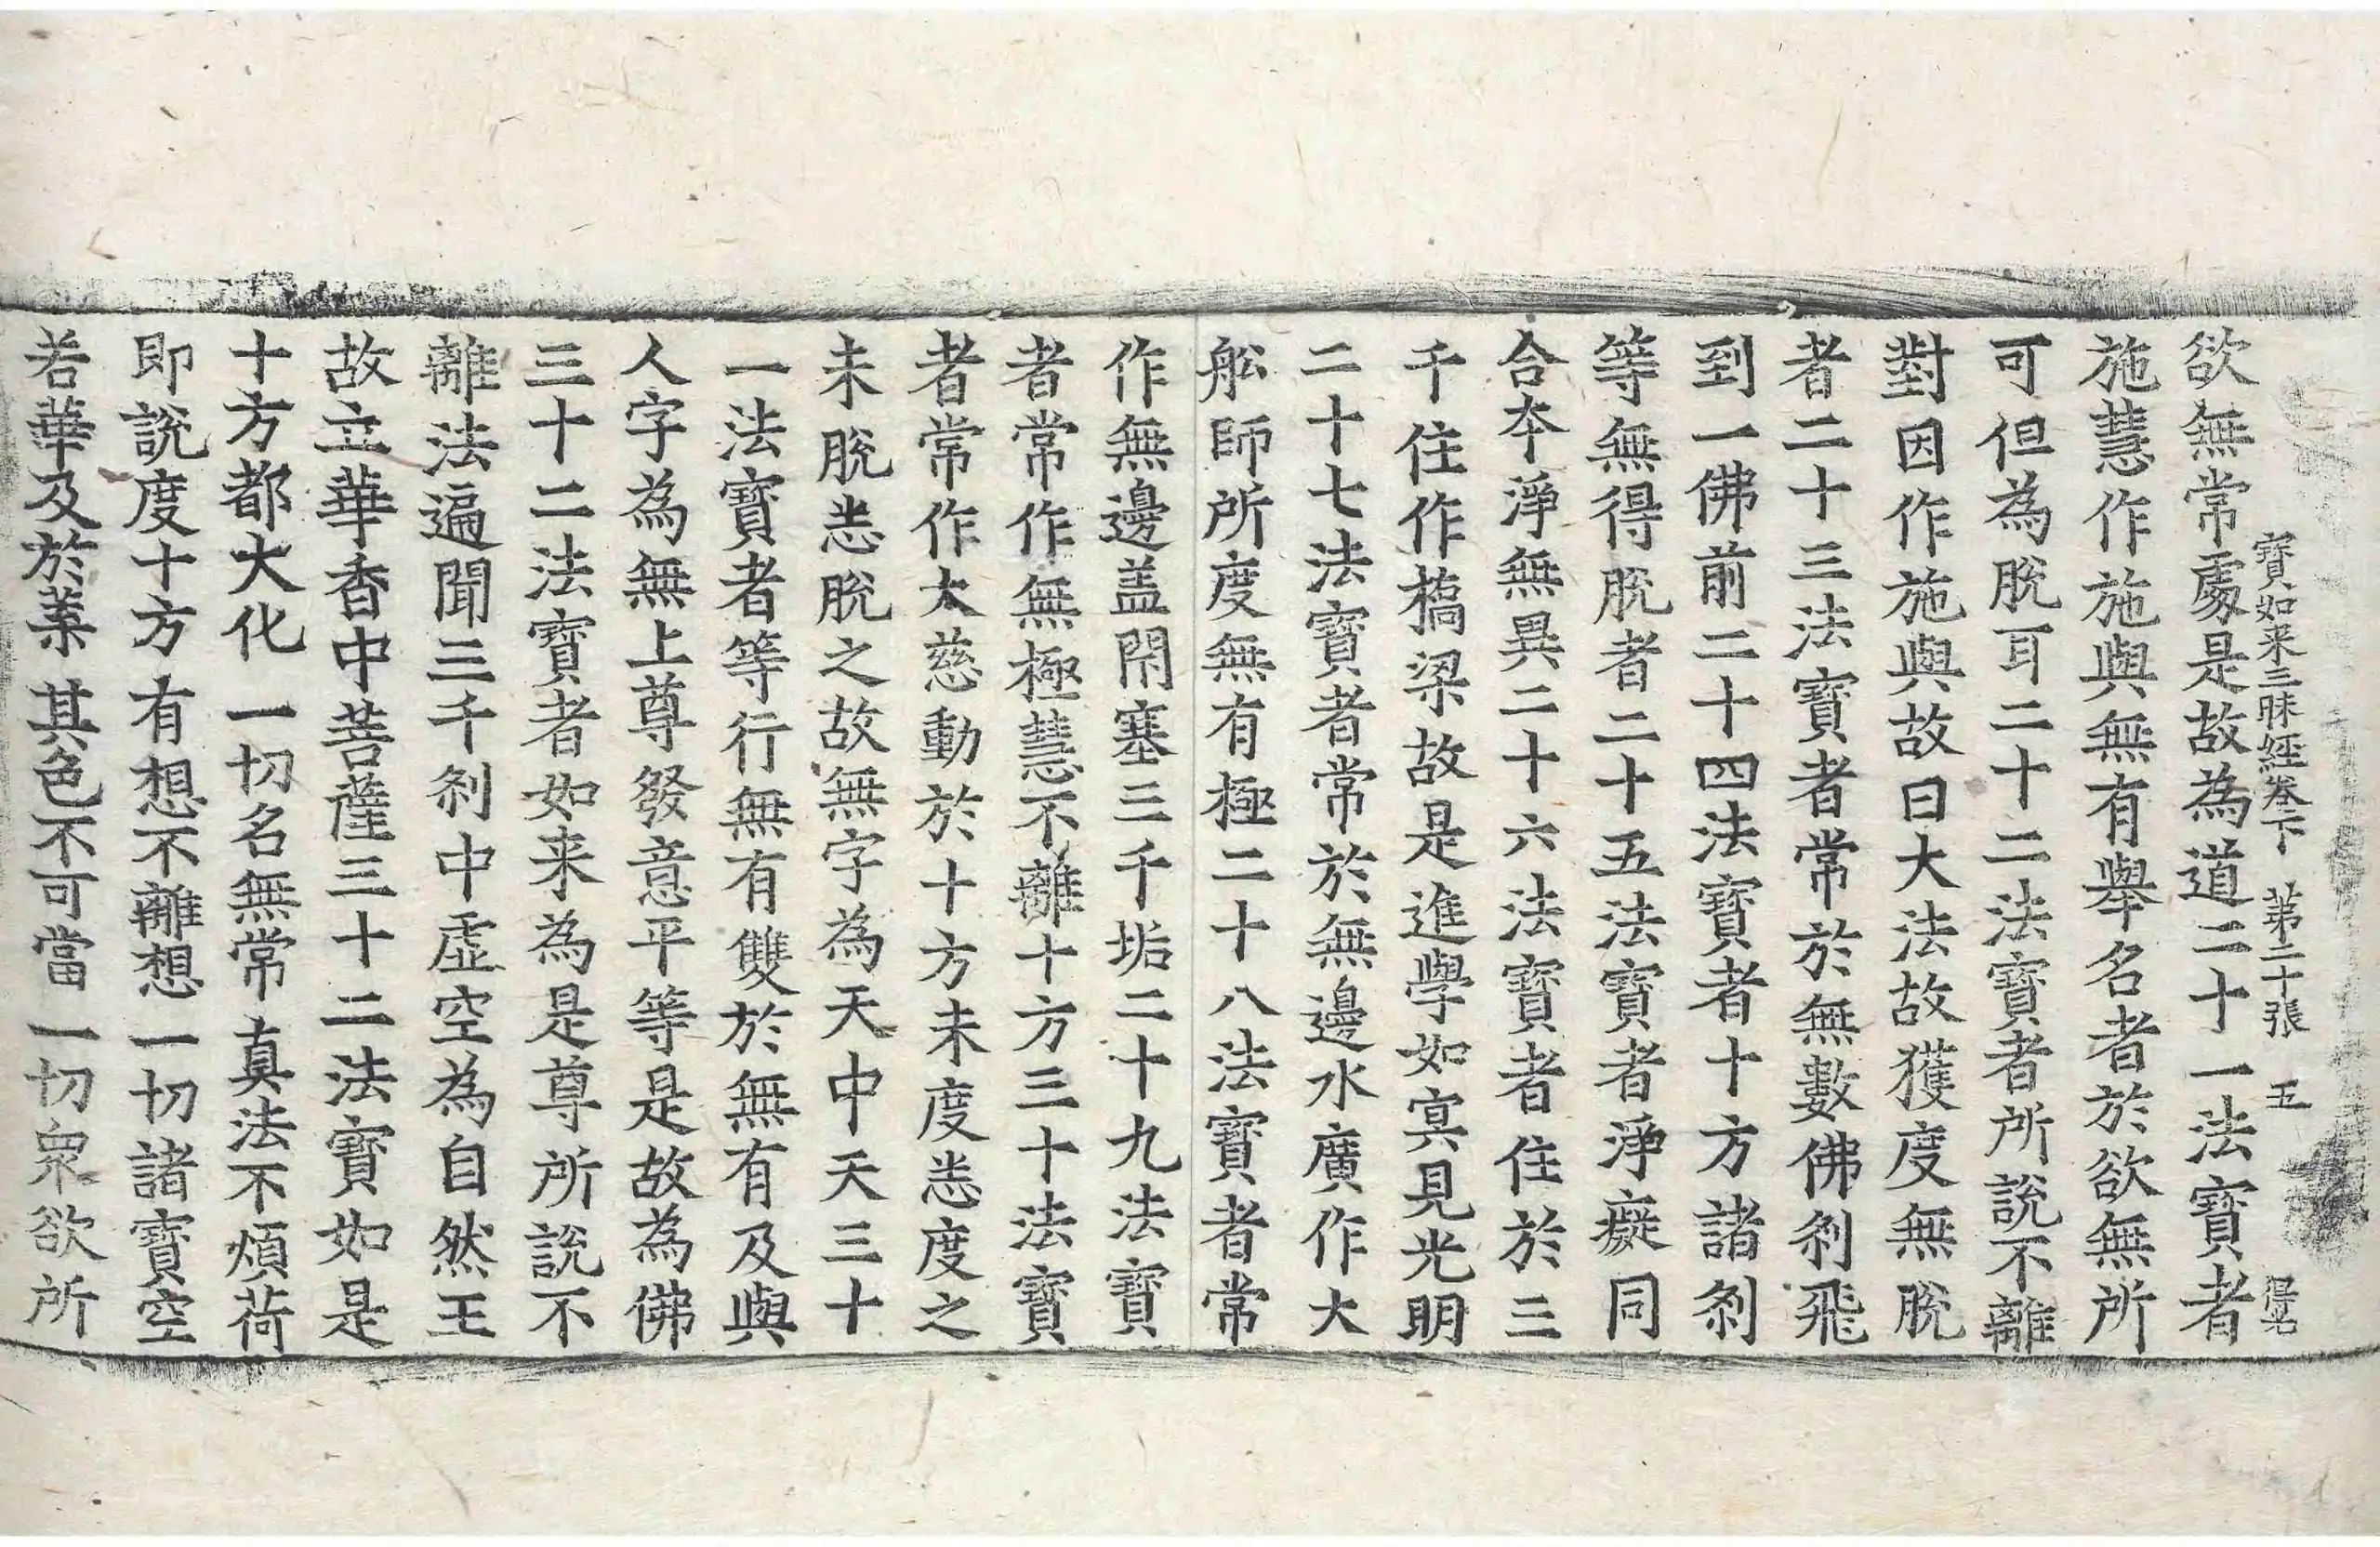 寶如来三昧經卷下 第二十張 五 得名
欲無常處是故為道二十一法寶者
施慧作施與無有舉名者於欲無所
可但為脫耳二十二法寶者所說不離
對因作施與故曰大法故獲度無脫
者二十三法寶者常於無數佛刹飛
到一佛前二十四法寶者十方諸刹
等無得脫者二十五法寶者淨癡同
合本淨無異二十六法寶者住於三
千住作橋梁故是進學如冥見光明
二十七法寶者常於無邊水廣作大
舩師所度無有極二十八法寶者常
作無邊盖閇塞三千垢二十九法寶
者常作無極慧不離十方三十法寶
者常作大慈動於十方未度恙度之
未脫恙脫之故無字為天中天三十
一法寶者等行無有雙於無有及與
人字為無上尊發意平等是故為佛
三十二法寶者如来為是尊所說不
離法遍聞三千刹中虛空為自然王
故立華香中菩薩三十二法寶如是
十方都大化一切名無常真法不煩荷
即說度十方有想不離想一切諸寶空
若華及於葉其色不可當一切衆欲所